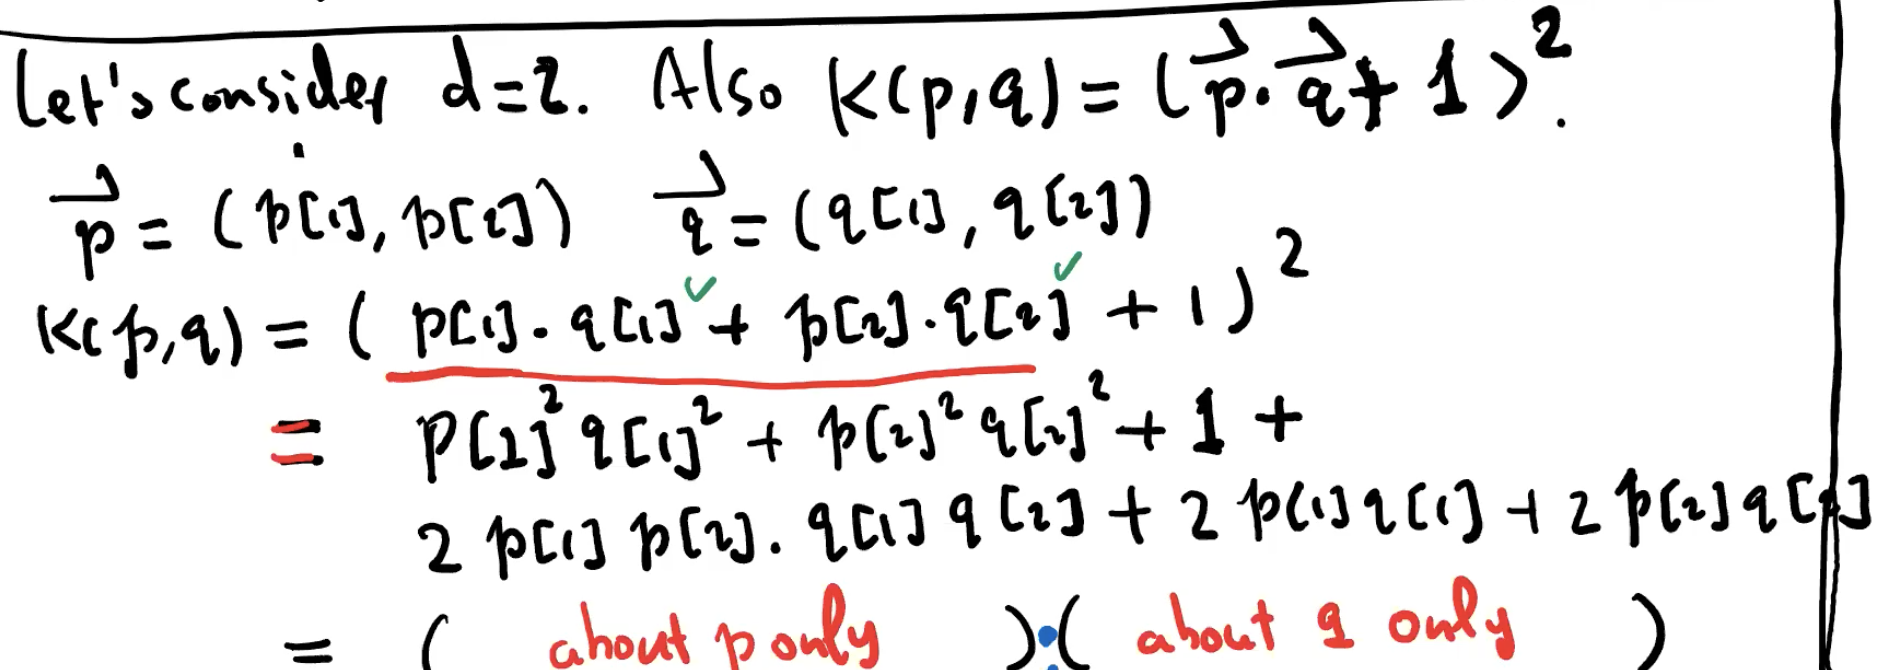 Let's consider d=2. Also K(p,q) = (p⃗·q⃗+1)².
p⃗ = (p[1], p[2]) q⃗ = (q[1], q[2])
K(p,q) = (p[1]·q[1]✓ + p[2]·q[2]✓ + 1)²
= p[1]²q[1]² + p[2]²q[2]² + 1 +
2 p[1] p[2]. q[1] q[2] + 2 p[1] q[1] + 2 p[2] q[2]
= ( about p only )·( about q only )